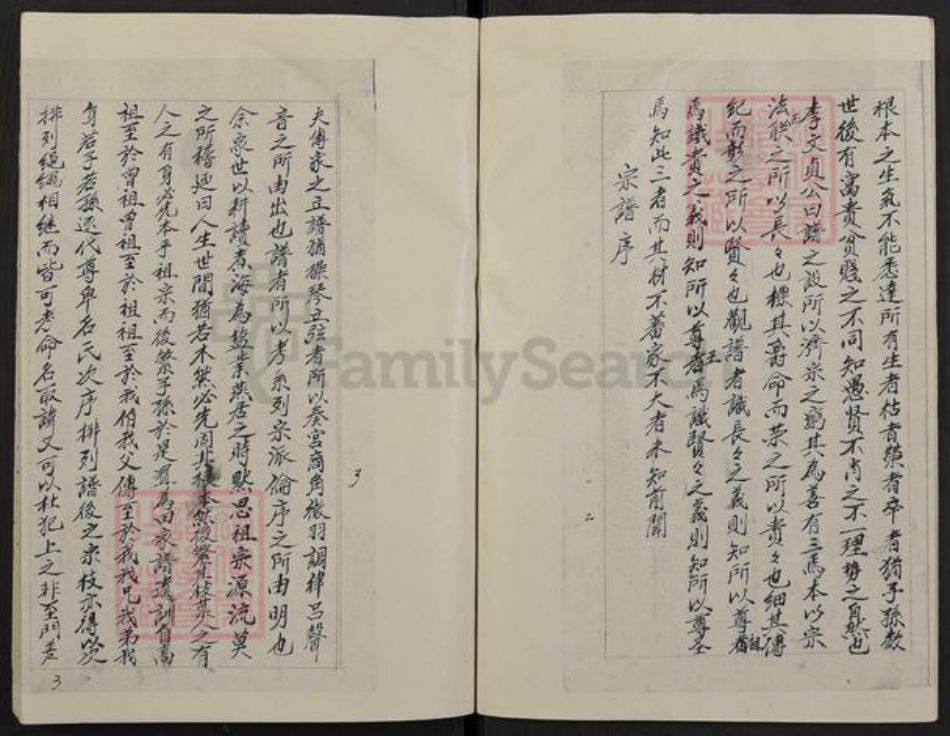 根本之生氣不能悉達所有生者枯者榮者卒者猶子孫數
世後有富貴貧賤之不同知愚賢不肖之不一理勢之自然也
李文貞公曰譜之設所以濟宗之窮其為喜有三焉本以宗
法聯之所以長々也標其爵命而榮之所以貴々也細其傳
紀而彰之所以賢々也觀譜者識長々之義則知所以尊祖
焉識貴々之義則知所以尊王焉識賢々之義則知所以尊
焉知此三者而其材不蕃家不大者未知前聞
宗譜序
二
夫傳家之立譜猶操琴立弦者所以奏宮商角徵羽調律呂聲
音之所由出也譜者所以考系列宗派倫序之所由明也
余家世以耕讀煮海為鹽業燕居之時默思祖宗源流莫
之所稽廼曰人生世間猶若木然必先固其根本然後繁其枝葉人之有
人之有身必先本乎祖宗而後繁子孫於是爰為田家譜遺訓自高
祖至於曾祖曾祖至於祖祖至於我伯我父傳至於我我兄我弟我
身若子若孫逐代尊卑名氏次序排列譜後之宗枝亦得以次
排列繩繩相继而皆可考命名取諱又可以杜犯上之非至門
3
3
FamilySearch